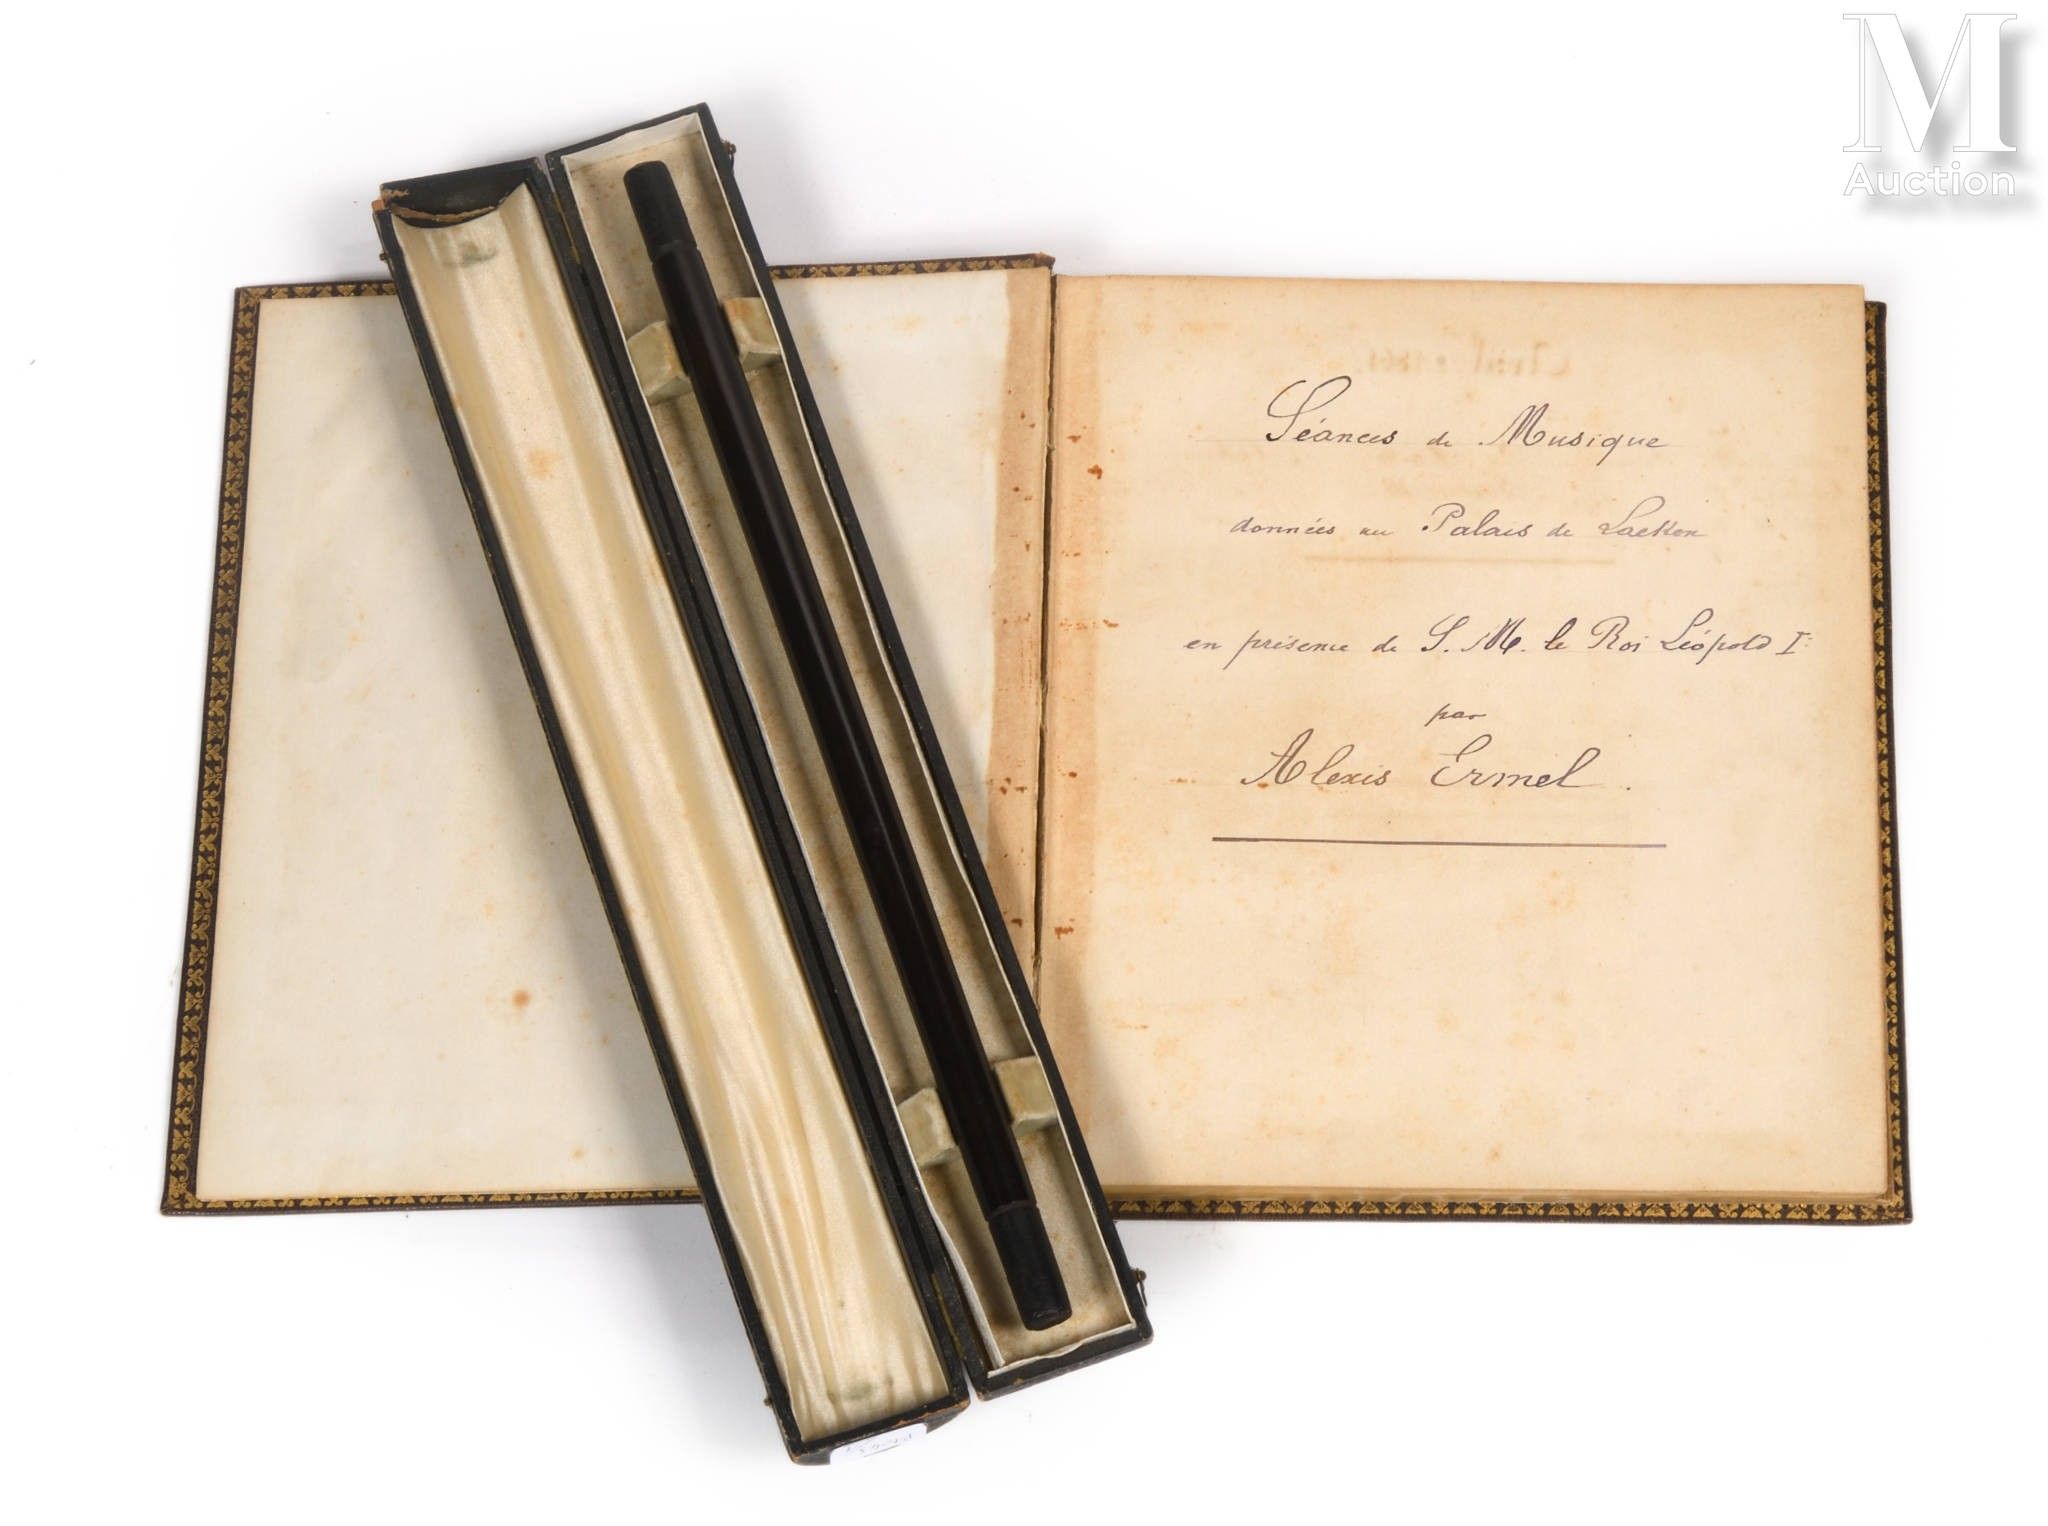 M
Auction
Séances de Musique
données au Palais de Laeken
en présence de S. M. le Roi Léopold Ier
par
Alexis Ermel.